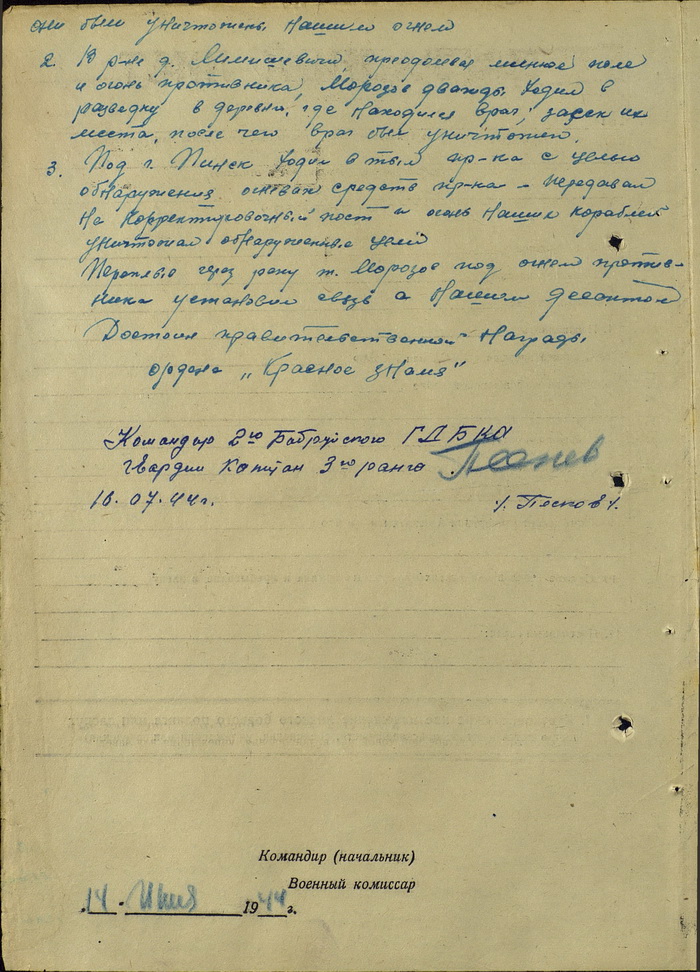 они были уничтожены нашим огнем
2. В р-не д. преодолевая минное поле
и огонь противника, Морозов дважды ходил в
разведку в деревни, где находился враг, засек их
места, после чего враг был уничтожен.
3. Под г. Пинск ходил в тыл пр-ка с целью
обнаружения огневых средств пр-ка – передавал
на корректировочный пост и огонь наших кораблей
уничтожал обнаруженные цели
Переплыв через реку т. Морозов под огнем против-
ника установил связь с нашим десантом
Достоин правительственной награды
ордена „Красное знамя"
Командир 2го Бобруйского ГДБКА
гвардии капитан 3го ранга
16.07.44г. /. Песков /.
Командир (начальник)
Военный комиссар
14 . Июля 1944 г.